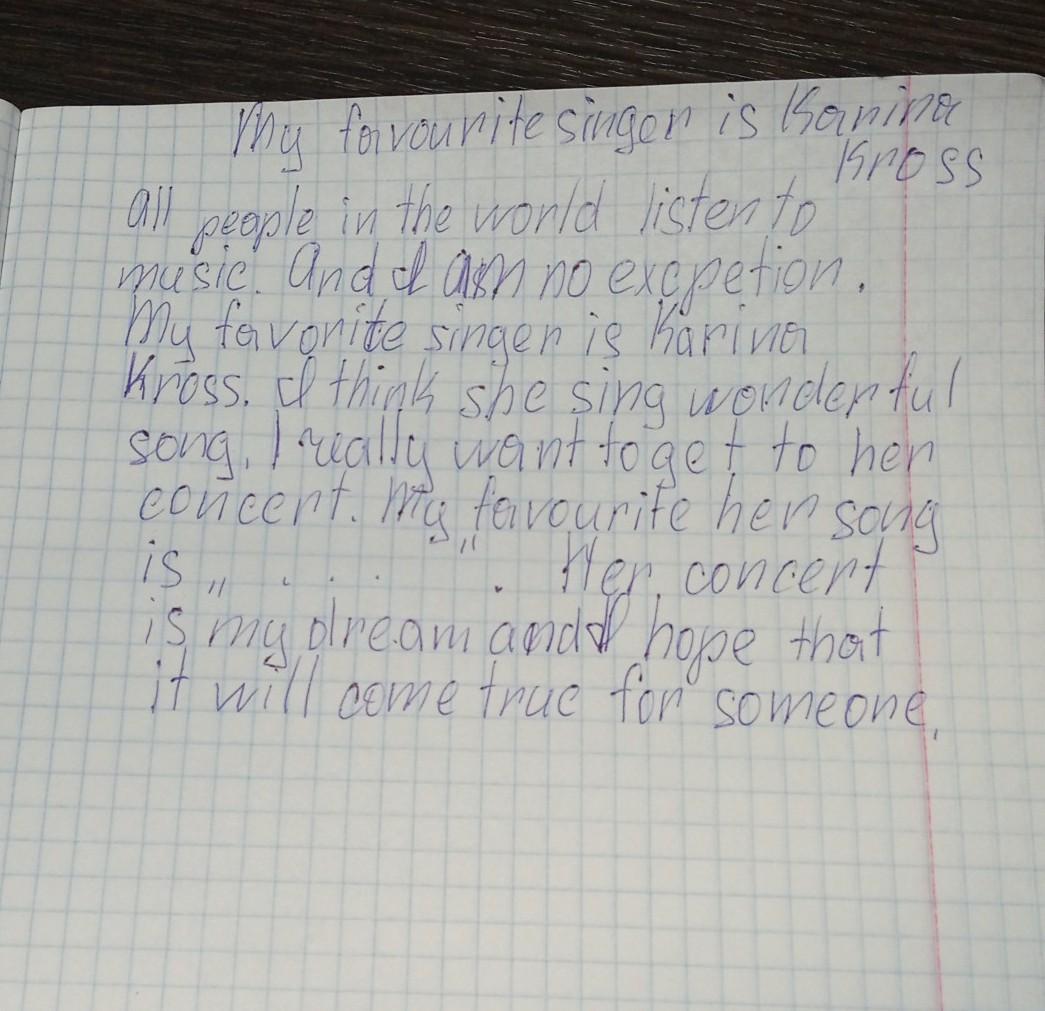 My favourite singer is Karina
Kross
All people in the world listen to
music. And I am no excpetion.
My favorite singer is Karina
Kross. I think she sing wonderful
song. I really want to get to her
concert. My favourite her song
is „ . . . " . Her concert
is my dream and I hope that
it will come true for someone.